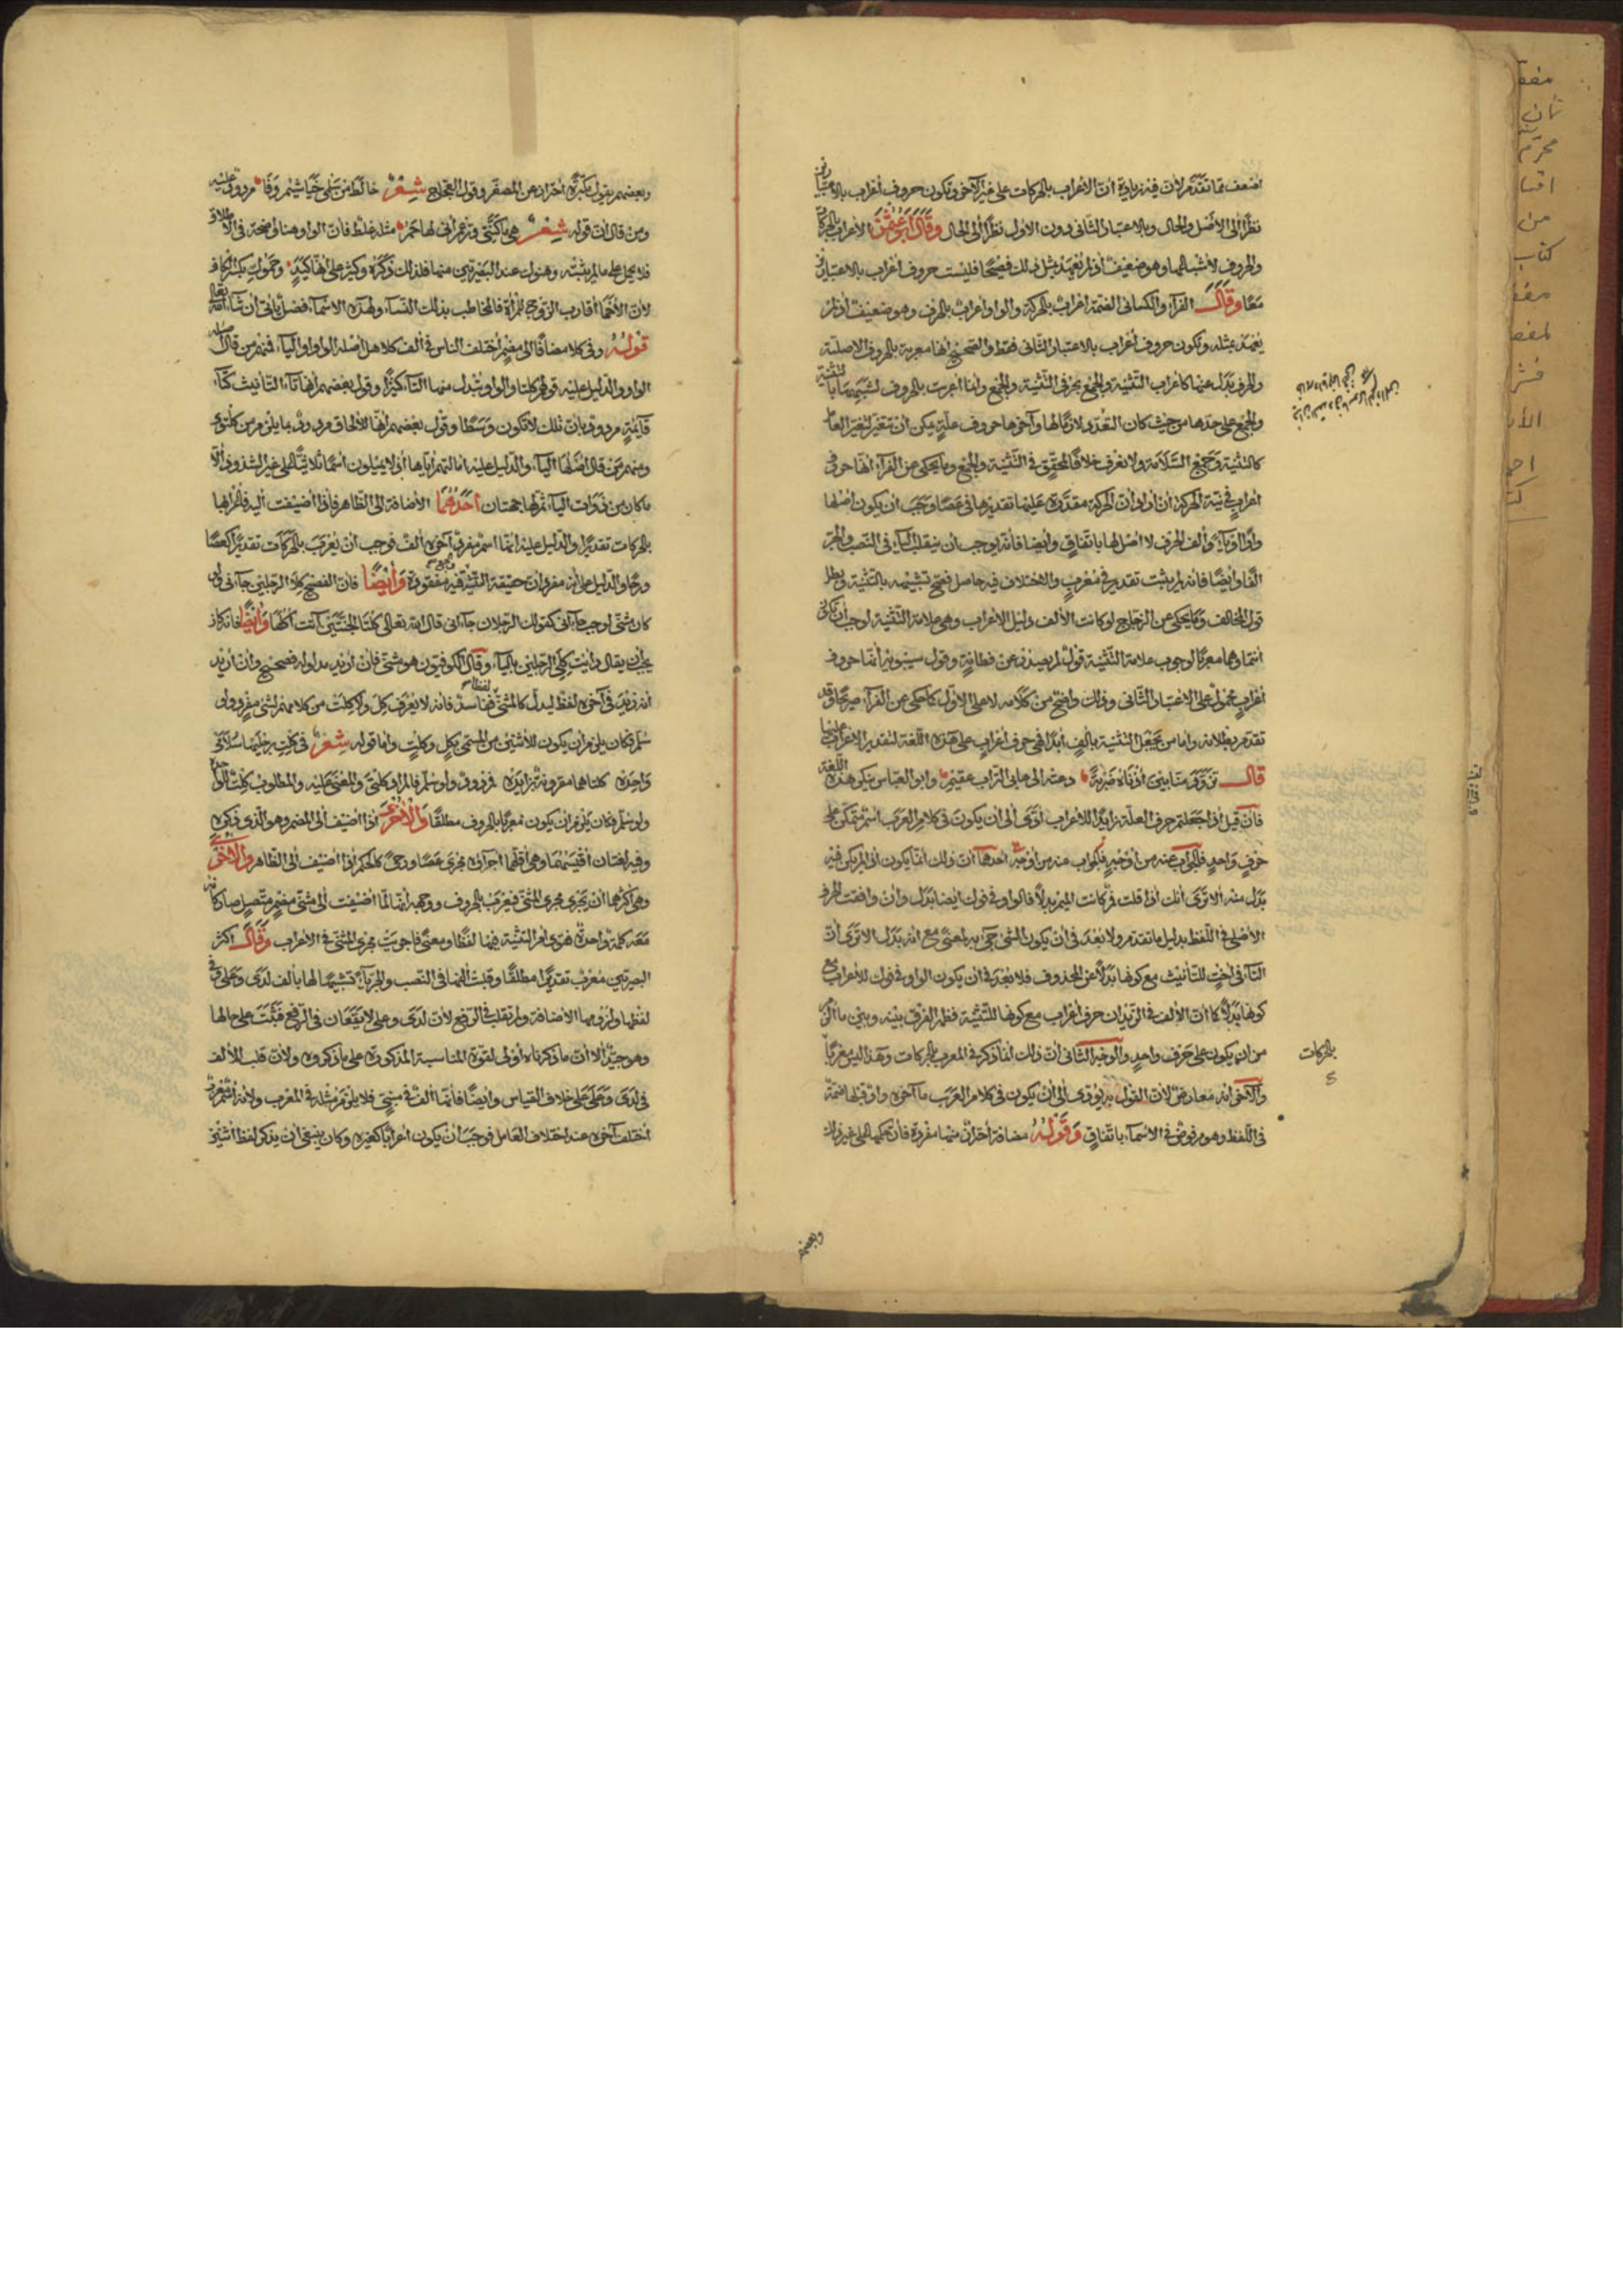 اضعف مما تقدم لأن فيه زيادة ان الاعراب بالحركات على غير الآخر وتكون حروف اعراب بالاعتبارين
نظرا الى الاصل والحال وبالاعتبار الثانى دون الاول نظرا الى الحال وقال ابو عثمن الاعراب بالحركات
والحروف لاشباعها وهو ضعيف اذ لم يعهد مثل ذلك فصيحا فليست حروف اعراب بالاعتبارين
معا وقال الفراء والكسائى الضمة اعراب بالحركة والواو اعراب بالحرف وهو ضعيف اذ لم
يعهد مثله وتكون حروف اعراب بالاعتبار الثانى فقط والصحيح انها معربة بالحروف الاصلية
والحرف بدل عنها كاعراب التثنية والجمع بحرفى التثنية والجمع وانما اعربت بالحروف لشبهها باب التثنية
والجمع على حدها من حيث كان التعدى لازما لها وآخرها حروف علة يمكن ان تتغير لتغير العامل
كالتثنية وجمع السلامة ولا نعرف خلافا لمحقق فى التثنية والجمع وما يحكى عن الفراء انها حروف
اعراب فى نية الحركة ان اراد ان الحركة مقدرة عليها تقديرها فى عصا وجب ان يكون اصلها
واوا او ياء والف الحرف لا اصل لها باتفاق وايضا فانه يوجب ان ينقلب الياء فى النصب والجر
الفا وايضا فانه لم يثبت تقدير فى معرب والاختلاف فيه حاصل فصح تشبيهه بالتثنية وبطل
قول المخالف وما يحكى عن الزجاج لو كانت الألف دليل الاعراب وهى علامة التثنية لوجب ان تكون
انتهاؤها معربا لوجوب علامة التثنية قول لم يصدر عن فطانة وقول سيبويه انها حروف
اعراب محمول على الاعتبار الثانى وذلك واضح من كلامه لا على الاول كما حكى عن الفراء صريحا وقد
تقدم بطلانه واما من يجعل التثنية بألف ابدا فهى حرف اعراب على هذه اللغة لتقدير الاعراب عليها
قال تزود منا بين اذناه ضربة دعته الى هابى التراب عقيم وابو العباس ينكر هذه اللغة
فان قيل اذا جعلتم حرف العلة زايدا للاعراب ادى الى ان يكون فى كلام العرب اسم متمكن على
حرف واحد فالجواب عنه من اوجه احدها ان ذلك انما يكون اذا لم يكن فيه
بدل منه الا ترى انك اذا قلت فم كانت الميم بدلا فالواو فى فوك ايضا بدل وان وافقت الحرف
الاصلى فى اللفظ بدليل ما تقدم ولا بعد فى ان يكون الشئ جئ به لمعنى مع انه بدل الا ترى ان
التاء فى اخت للتأنيث مع كونها بدلا عن المحذوف فلا بعد فى ان يكون الواو فى فوك للاعراب مع
كونها بدلا كما ان الألف فى الزيدان حرف اعراب مع كونها للتثنية فظهر الفرق بينه وبين ما الزم
من ان يكون على حرف واحد والوجه الثانى ان ذلك انما ذكر فى المعرب بالحركات وهذا ليس معربا
والآخر انه معارض لأن القول به يؤدى الى ان يكون فى كلام العرب ما آخره واو قبلها ضمة
فى اللفظ وهو مرفوض فى الاسماء باتفاق وقوله مضافة احتراز منها مفردة فان حكمها على غير ذلك
بالحركات
وبعضهم
وبعضهم يقول مكبرة احترازا عن المصغر وقول العجاج شعر خالط من سلمى خياشيم وفا مردود عليه
ومن قال ان قوله شعر هى ما كنتى وتزعم انى لها حم مثله غلط فان الواو هنا واضحة فى الاطلاق
فلا يحمل على ما لم يثبت وهنوك عند البصريين منها فلذلك ذكره وكثير على انها كيد وحموك بكسر الكاف
لأن الأحما اقارب الزوج للمرأة فالمخاطب بذلك النساء ولهذه الاسماء فصل يأتى ان شاء الله تعالى
قوله وفى كلا مضافا الى مضمر اختلف الناس فى الف كلا هل اصله الواو او الياء فمنهم من قال اصله
الواو والدليل عليه قولهم كلتا والواو تبدل منها التاء كثيرا وقول بعضهم انها تاء التأنيث كتاء
قائمة مردود بأن تلك لا تكون وسطا وقول بعضهم انها للالحاق مردود بما يلزم من كلتوى
ومنهم من قال اصلها الياء والدليل عليه امالتهم اياها اذ لا يميلون اسما ثلاثيا على غير الشذوذ الا
ما كان من ذوات الياء ثم لها جهتان احدهما الاضافة الى الظاهر فاذا اضيفت اليه فاعرابها
بالحركات تقديرا والدليل عليه انها اسم مفرد آخره الف فوجب ان يعرب بالحركات تقديرا كعصا
ورحا والدليل على انه مفرد ان حقيقة التثنية فيه مفقودة وايضا فان الفصيح كلا الرجلين جاءنى ولو
كان مثنى لوجب جاءانى كقولك الرجلان جاءانى قال الله تعالى كلتا الجنتين آتت اكلها وايضا فانه كان
يجب ان يقال رأيت كلى الرجلين بالياء وقال الكوفيون هو مثنى فان اريد مدلوله فصحيح وان اريد
انه زيد فى آخره لفظ ليدل كالمثنى لفظا ففاسد فانه لا يعرف كل ولا كلت من كلامهم لشئ مفرد ولو
سلم فكان يلزم ان يكون للاثنين من المسمى بكل وكلت واما قوله شعر فى كلت رجليها سلامى
واحده كلتاهما مقرونة بزايده فمردود ولو سلم فالمراد كلتى والمعنى عليه والمطلوب كلت للواحد
ولو سلم فكان يلزم ان يكون معربا بالحروف مطلقا والاخرى اذا اضيف الى المضمر وهو الذى ذكره
وفيه لغتان اقيسهما وهى اقلهما اجراؤه مجرى عصا ورحى كالحكم اذا اضيف الى الظاهر والاخرى
وهى اكثرهما ان يجرى مجرى المثنى فيعرب بالحروف ووجهه انها لما اضيفت الى مثنى مضمر متصل صار كانه
معه كلمة واحدة فقوى امر التثنية فيها لفظا ومعنى فاجريت مجرى المثنى فى الاعراب وقال اكثر
البصريين معرب تقديرا مطلقا وقلبت الفها فى النصب والجر ياء تشبيها لها بألف لدى وعلى فى
لفظها ولزومها الاضافة ولم تقلب فى الرفع لأن لدى وعلى لا يقعان فى الرفع فبقيت على حالها
وهو جيد الا ان ما ذكرناه اولى لقوة المناسبة المذكورة على ما ذكروه ولأن قلب الألف
فى لدى وعلى على خلاف القياس وايضا فانها الف فى مبنى فلا يلزم مثله فى المعرب ولأنه اسم معرب
اختلف آخره عند اختلاف العامل فوجب ان يكون اعرابا كغيره وكان ينبغى ان يذكر لفظ اثنين